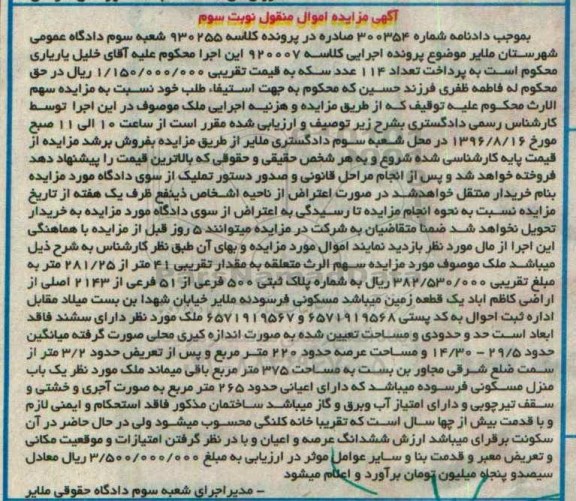 آگهی مزایده اموال منقول نوبت سوم
بموجب دادنامه شماره ۳۰۰۳۵۴ صادره در پرونده کلاسه ۹۳۰۲۵۵ شعبه سوم دادگاه عمومی
شهرستان ملایر موضوع پرونده اجرایی کلاسه ۹۲۰۰۰۷ این اجرا محکوم علیه آقای خلیل یاریاری
محکوم است به پرداخت تعداد ۱۱۴ عدد سکه به قیمت تقریبی ۱/۱۵۰/۰۰۰/۰۰۰ ریال در حق
محکوم له فاطمه ظفری فرزند حسین که محکوم به جهت استیفاء طلب خود نسبت به مزایده سهم
الارث محکوم علیه توقیف که از طریق مزایده و هزینه اجرایی ملک موصوف در این اجرا توسط
کارشناس رسمی دادگستری بشرح زیر توصیف و ارزیابی شده مقرر است از ساعت ۱۰ الی ۱۱ صبح
مورخ ۱۳۹۶/۸/۱۶ در محل شعبه سوم دادگستری ملایر از طریق مزایده بفروش برشد مزایده از
قیمت پایه کارشناسی شده شروع و به هر شخص حقیقی و حقوقی که بالاترین قیمت را پیشنهاد دهد
فروخته خواهد شد و پس از انجام مراحل قانونی و صدور دستور تملیک از سوی دادگاه مورد مزایده
بنام خریدار منتقل خواهدشد در صورت اعتراض از ناحیه اشخاص ذینفع ظرف یک هفته از تاریخ
مزایده نسبت به نحوه انجام مزایده تا رسیدگی به اعتراض از سوی دادگاه مورد مزایده به خریدار
تحویل نخواهد شد ضمنا متقاضیان به شرکت در مزایده میتوانند ۵ روز قبل از مزایده با هماهنگی
این اجرا از مال مورد نظر بازدید نمایند اموال مورد مزایده و بهای آن طبق نظر کارشناس به شرح ذیل
میباشد ملک موصوف مورد مزایده سهم الرث متعلقه به مقدار تقریبی ۴۱ متر از ۲۸۱/۲۵ متر به
مبلغ تقریبی ۳۸۲/۵۳۰/۰۰۰ ریال به شماره پلاک ثبتی ۵۰۰ فرعی از ۵۱ فرعی از ۲۱۴۳ اصلی از
اراضی کاظم اباد یک قطعه زمین میباشد مسکونی فرسودنه ملایر خیابان شهدا بن بست میلاد مقابل
اداره ثبت احوال به کد پستی ۶۵۷۱۹۱۹۵۶۸ و ۶۵۷۱۹۱۹۵۶۷ ملک مورد نظر دارای سشند فاقد
ابعاد است حد و حدودی و مساحت تعیین شده به صورت اندازه کیری محلی صورت گرفته میانگین
حدود ۲۹/۵ - ۱۴/۳۰ و مساحت عرصه حدود ۲۲۰ متر مربع و پس از تعریض حدود ۳/۲ متر از
سمت ضلع شرقی مجاور بن بست به مساحت ۳۷۵ متر مربع باقی میماند ملک مورد نظر یک باب
منزل مسکونی فرسوده میباشد که دارای اعیانی حدود ۲۶۵ متر مربع به صورت آجری و خشتی و
سقف تیرچوبی و دارای امتیاز آب وبرق و گاز میباشد ساختمان مذکور فاقد استحکام و ایمنی لازم
و با قدمت بیش از چها سال است که تقریبا خانه کلنگی محسوب میشود ولی در حال حاضر در آن
سکونت برقرای میباشد ارزش ششدانگ عرصه و اعیان و با در نظر گرفتن امتیازات و موقعیت مکانی
و تعریض معبر و قدمت بنا و سایر عوامل موثر در ارزیابی به مبلغ ۳/۵۰۰/۰۰۰/۰۰۰ ریال معادل
سیصدو پنجاه میلیون تومان برآورد و اعلام میشود
- مدیراجرای شعبه سوم دادگاه حقوقی ملایر